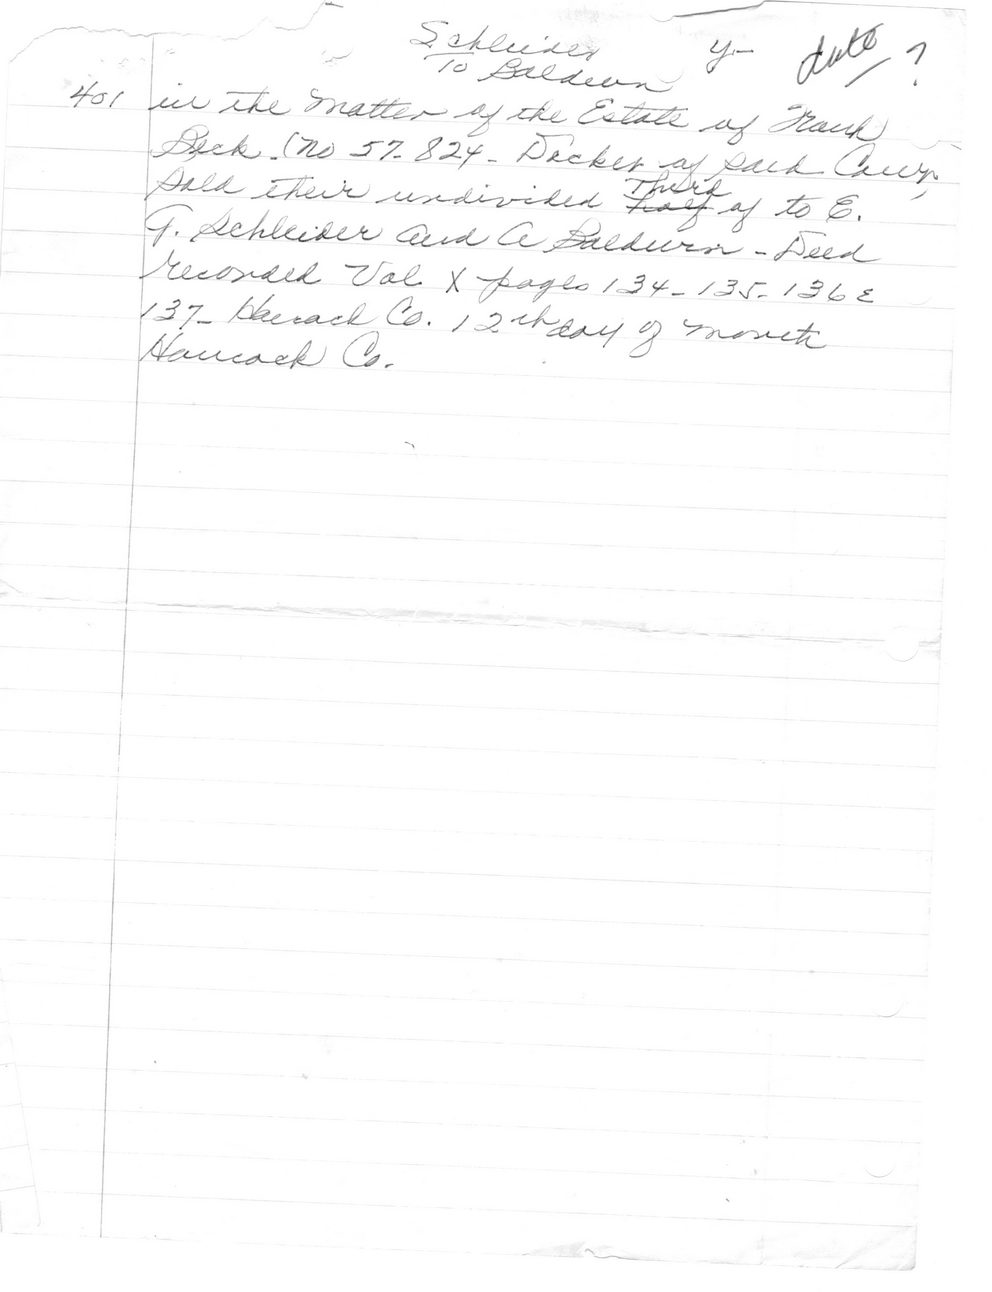 Schleider y- date ?
To Baldwin
401 in the Matter of the Estate of Frank
Beck - (No 57-824 - Docket of said Court,
sold their undivided Third half of to E.
G. Schleider and A Baldwin - Deed
recorded Vol. X pages 134-135-136 &
137- Hancock Co. 12th day of month
Hancock Co.